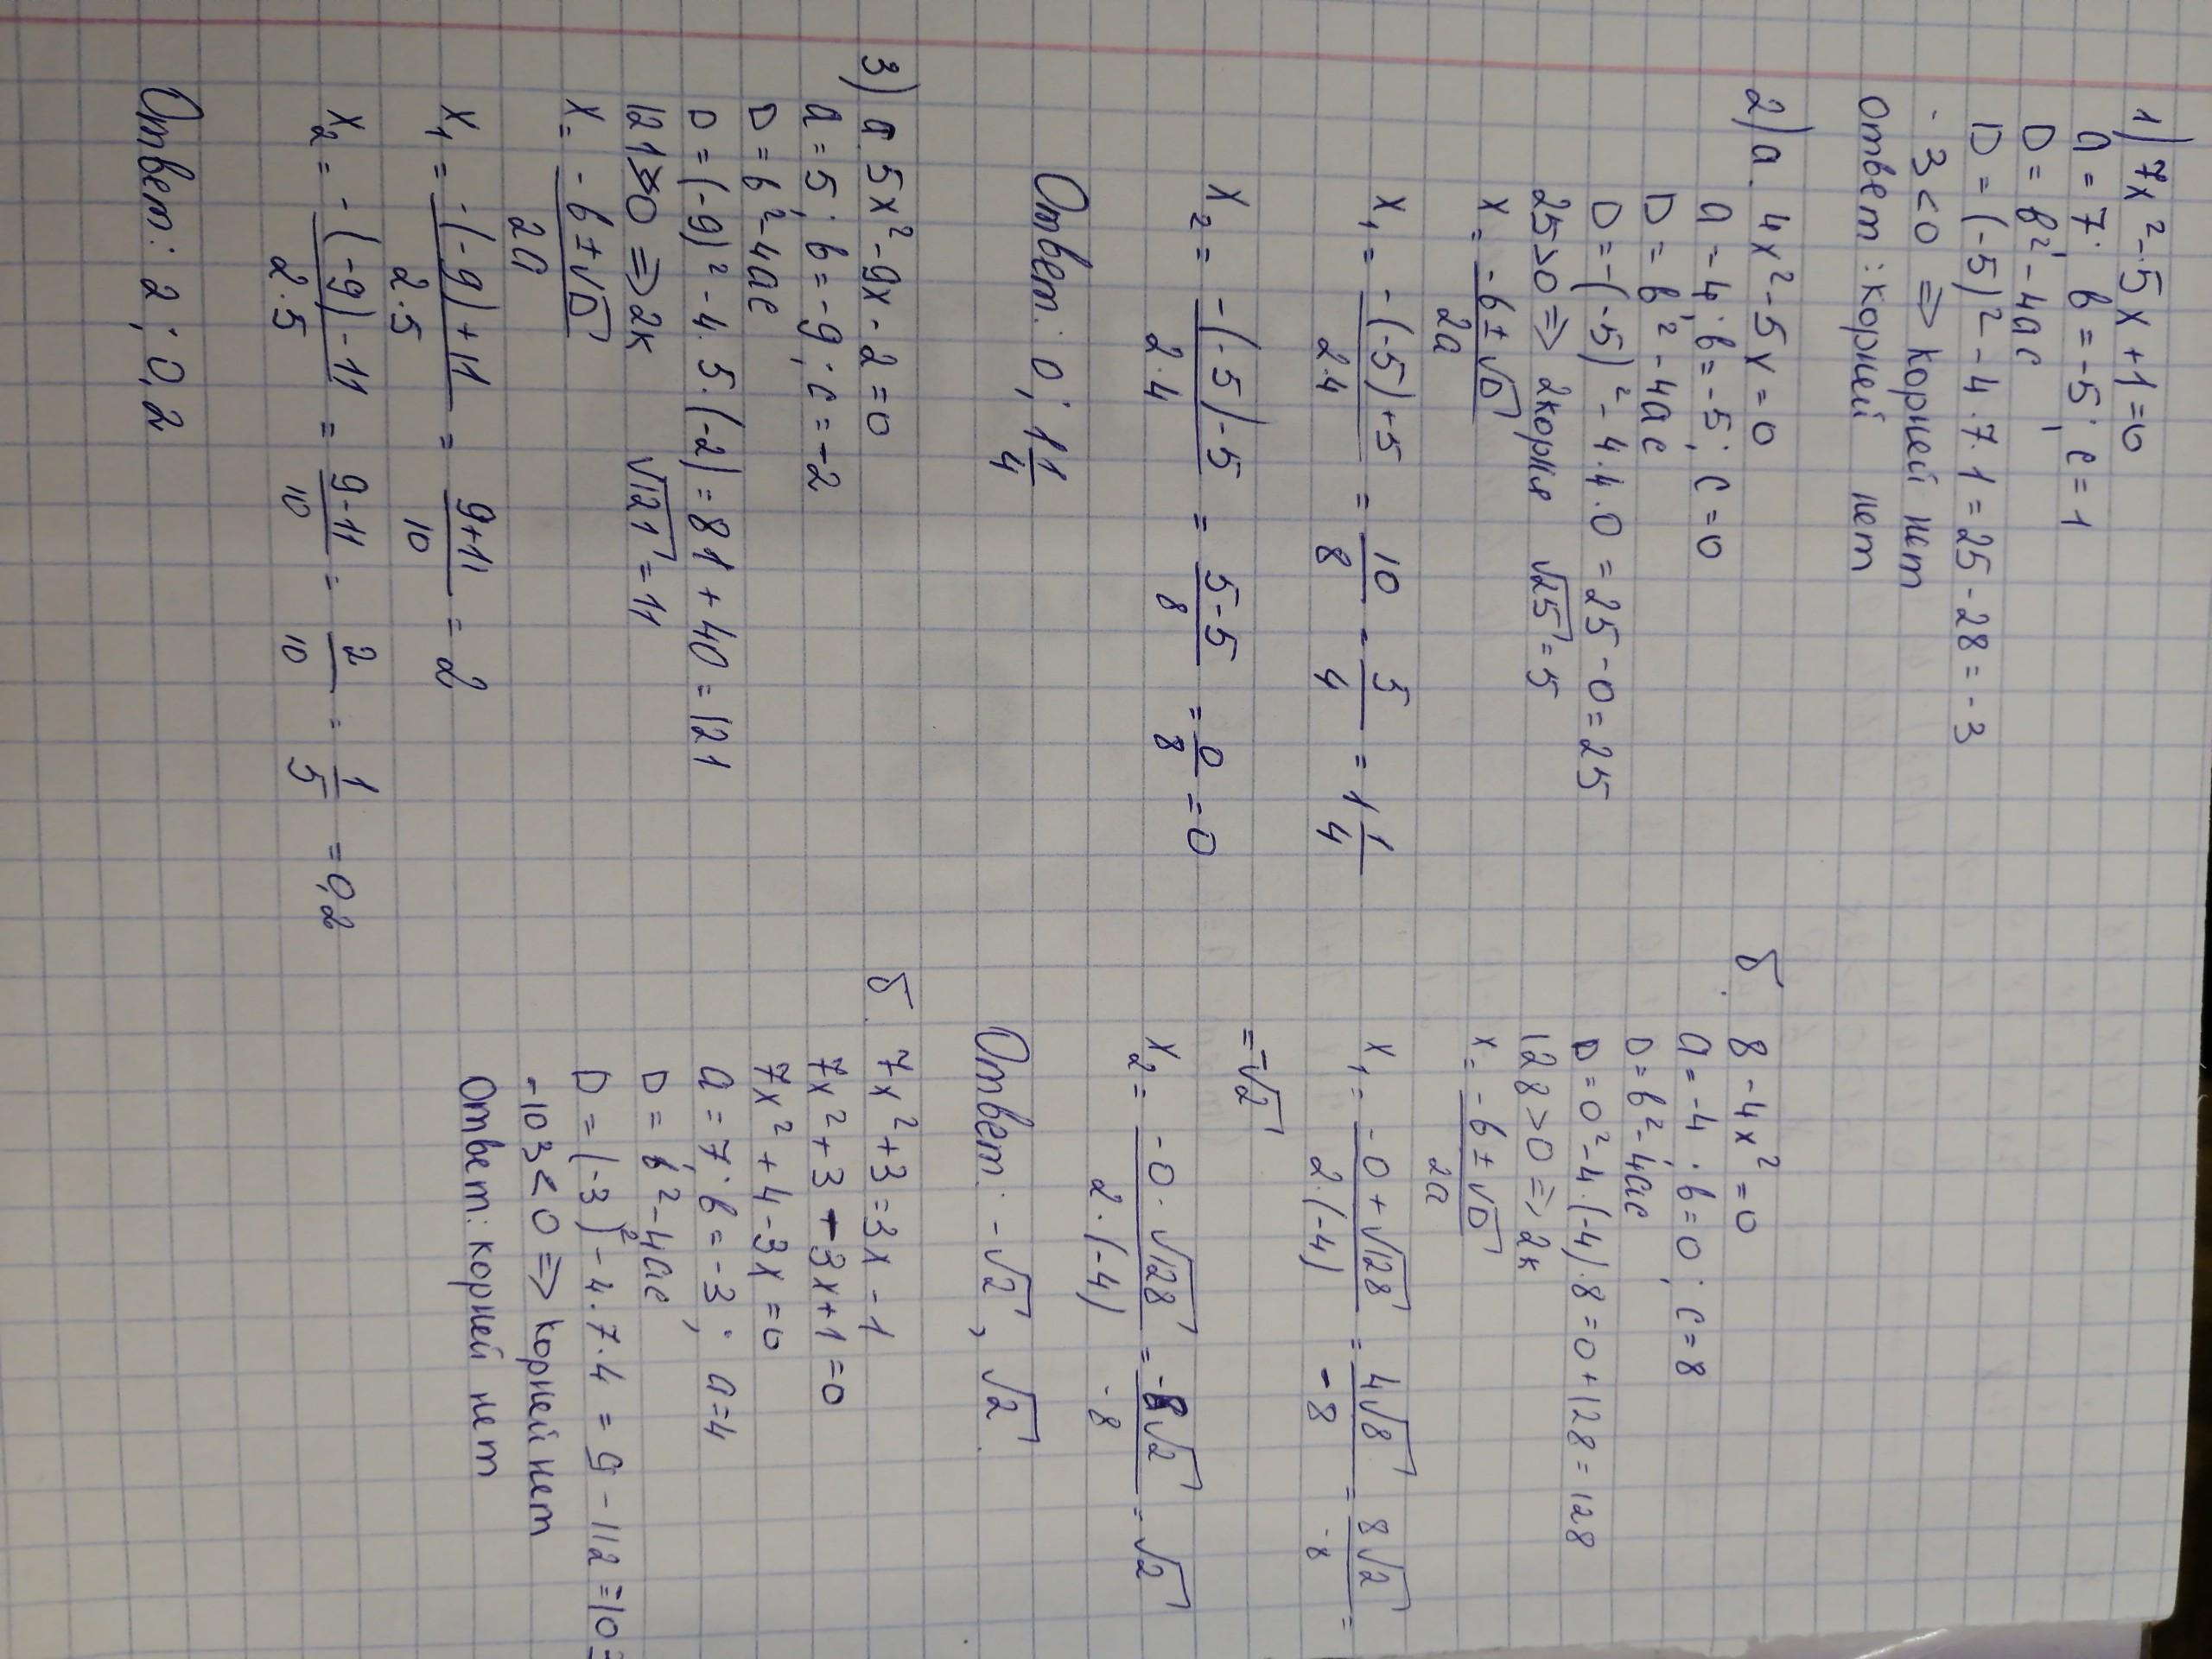 1) 7x² - 5x + 1 = 0
a = 7; b = -5; c = 1
D = b² - 4ac
D = (-5)² - 4 · 7 · 1 = 25 - 28 = -3
-3 < 0 ⇒ корней нет
Ответ: корней нет
2) а. 4x² - 5x = 0
a = 4; b = -5; c = 0
D = b² - 4ac
D = (-5)² - 4·4·0 = 25 - 0 = 25
25 > 0 ⇒ 2 корня √25 = 5
x = (-b ± √D) / 2a
x₁ = (-(-5) + 5) / 2·4 = 10/8 = 5/4 = 1 1/4
x₂ = (-(-5) - 5) / 2·4 = (5-5)/8 = 0/8 = 0
Ответ: 0; 1 1/4
б. 8 - 4x² = 0
a = -4; b = 0; c = 8
D = b² - 4ac
D = 0² - 4·(-4)·8 = 0 + 128 = 128
128 > 0 ⇒ 2к
x = (-b ± √D) / 2a
x₁ = (-0 + √128) / 2·(-4) = 4√8 / -8 = 8√2 / -8 =
= -√2
x₂ = (-0 - √128) / 2·(-4) = -8√2 / -8 = √2
Ответ: -√2, √2.
3) а. 5x² - 9x - 2 = 0
a = 5; b = -9; c = -2
D = b² - 4ac
D = (-9)² - 4·5·(-2) = 81 + 40 = 121
121 > 0 ⇒ 2к √121 = 11
x = (-b ± √D) / 2a
x₁ = (-(-9) + 11) / 2·5 = (9+11)/10 = 2
x₂ = (-(-9) - 11) / 2·5 = (9-11)/10 = 2/10 = 1/5 = 0,2
Ответ: 2; 0,2
б. 7x² + 3 = 3x - 1
7x² + 3 - 3x + 1 = 0
7x² + 4 - 3x = 0
a = 7; b = -3; a = 4
D = b² - 4ac
D = (-3)² - 4·7·4 = 9 - 112 = -103
-103 < 0 ⇒ корней нет
Ответ: корней нет